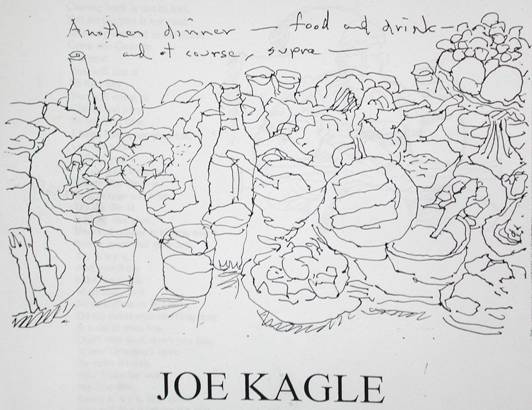 Another dinner — food and drink —
and of course, supra —
JOE KAGLE